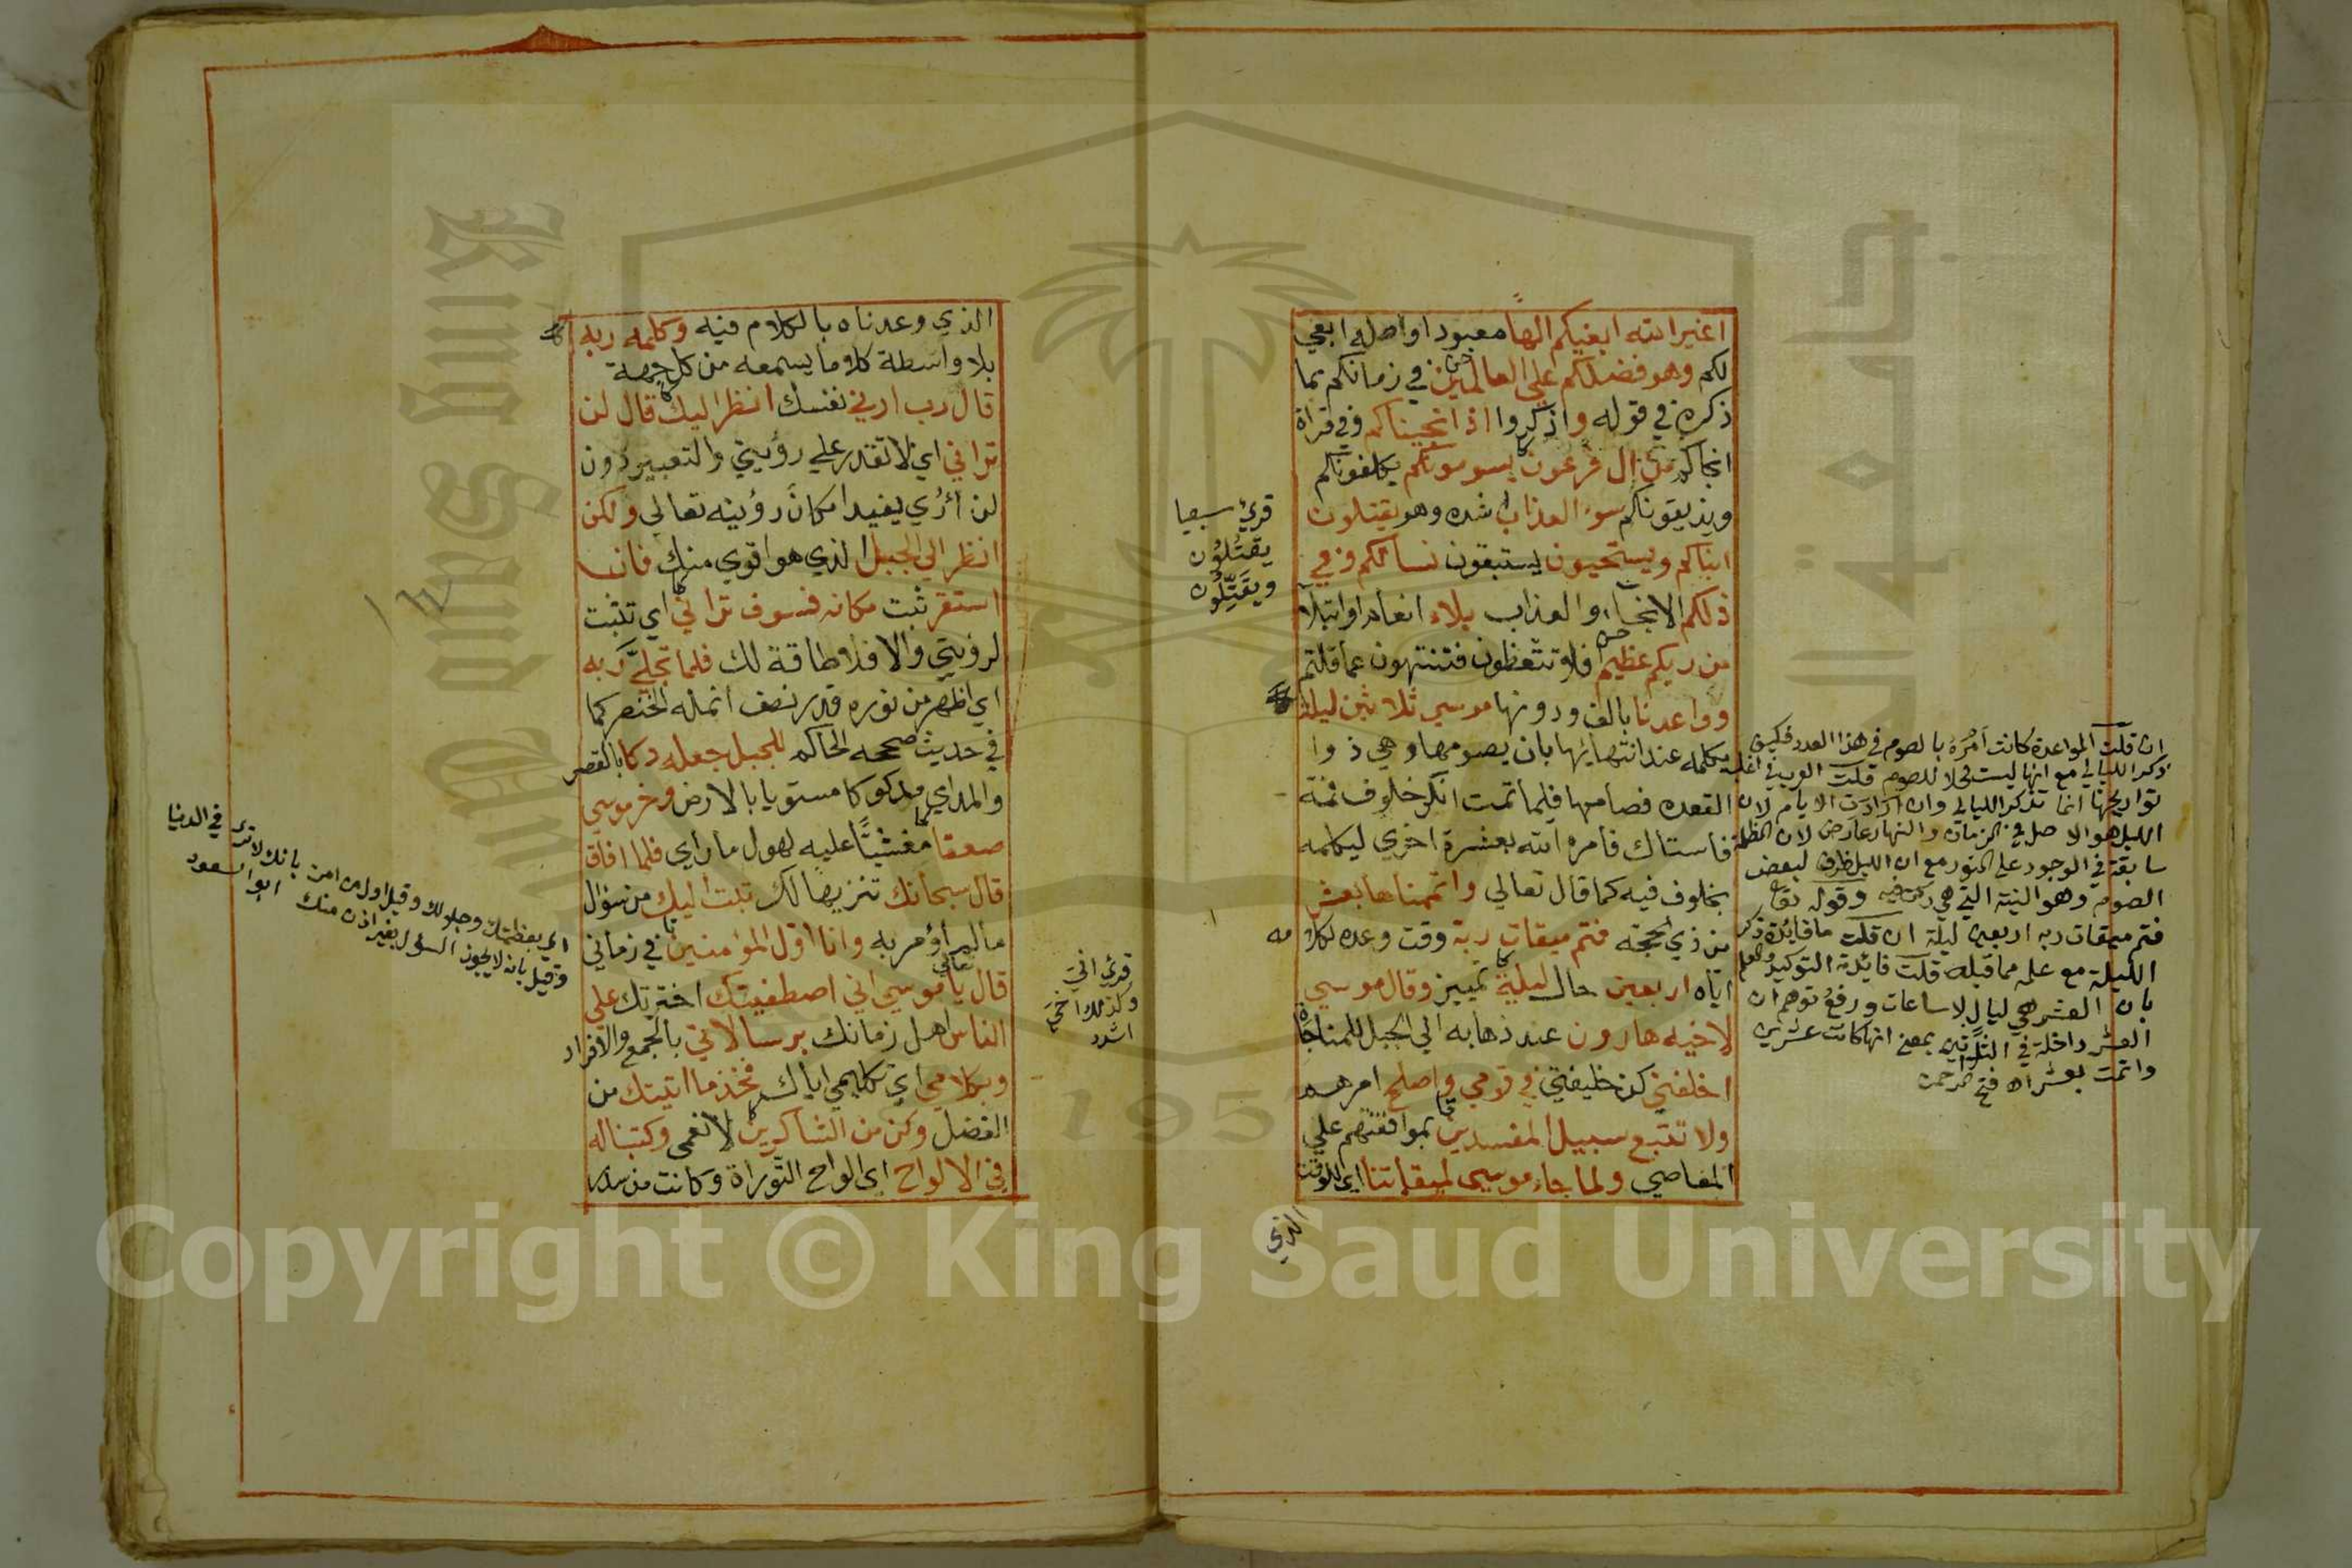 اغير الله ابغيكم الها معبودا واصله ابغي
لكم وهو فضلكم علي العالمين في زمانكم بما
ذكره في قوله واذكروا اذ انجيناكم وفي قراة
انجاكم من ال فرعون يسومونكم يكلفونكم
ويذيقونكم سوء العذاب اشده وهو يقتلون
ابناكم ويستحيون يستبقون نسائكم وفي
ذلكم الانجاء والعذاب بلاء انعام او ابتلا
من ربكم عظيم افلا تتعظون فتنتهون عما قلتم
وواعدنا بالف ودونها موسي ثلاثين ليلة
نكلمه عند انتهايها بان يصومها وهي ذوا
القعده فصامها فلما تمت انكر خلوف فمه
فاستاك فامره الله بعشرة اخري ليكلمه
بخلوف فيه كما قال تعالي واتممناها بعشر
من ذي الحجة فتم ميقات ربه وقت وعده لكلامه
اياه اربعين حال ليلة تمييز وقال موسي
لاخيه هارون عند ذهابه الي الجبل للمناجاة
اخلفني كن خليفتي في قومي واصلح امرهم
ولا تتبع سبيل المفسدين بموافقتهم علي
المعاصي ولما جاء موسي لميقاتنا اي للوقت
الذي
قرئ سبعيا
يقتلون
ويقتلون
ان قلت المواعدة كانت امره بالصوم في هذا العدد فكيف
ذكر الليالي مع انها ليست محلا للصوم قلت العرب في اغلب
تواريخها انما تذكر الليالي وان ارادت الايام لان
الليل هو الاصل في الزمان والنهار عارض لان الظلمة
سابقة في الوجود علي النور مع ان الليل ظرف لبعض
الصوم وهو النية التي هي ركن فيه وقوله تعا
فتم ميقات ربه اربعين ليلة ان قلت ما فائدة ذكر
الليلة مع علمه مما قبله قلت فائدته التوكيد والعلم
بان العشر هي ليال لا ساعات ورفع توهم ان
العشر داخلة في الثلاثين بمعني انها كانت عشرين
واتمت بعشر اه فتح الرحمن
الذي وعدناه بالكلام فيه وكلمه ربه
بلا واسطة كلاما يسمعه من كل جهة
قال رب ارني نفسك انظر اليك قال لن
تراني اي لا تقدر علي رؤيتي والتعبير دون
لن أري يفيد امكان رؤيته تعالي ولكن
انظر الي الجبل الذي هو اقوي منك فان
استقر ثبت مكانه فسوف تراني اي تثبت
لرؤيتي والا فلا طاقة لك فلما تجلي ربه
اي اظهر من نوره قدر نصف انملة الخنصر كما
في حديث صححه الحاكم للجبل جعله دكا بالقصر
والمد اي مدكوكا مستويا بالارض وخر موسي
صعقا مغشيا عليه لهول ما راي فلما افاق
قال سبحانك تنزيها لك تبت اليك من سؤال
ما لم اؤمر به وانا اول المؤمنين في زماني
قال تعالي يا موسي اني اصطفيتك اخترتك علي
الناس اهل زمانك برسالاتي بالجمع والافراد
وبكلامي اي تكليمي اياك فخذ ما اتيتك من
الفضل وكن من الشاكرين لانعمي وكتبنا له
في الالواح اي الواح التوراة وكانت من سدر
قرئ اني
وكذلك اخي
اشدد
اي بعظمتك وجلالك وقيل اول من امن بانك لا ترى في الدنيا
وقيل بانه لا يجوز السؤال بغير اذن منك ابو السعود
Copyright © King Saud University
King Saud University
جامعة الملك
1957